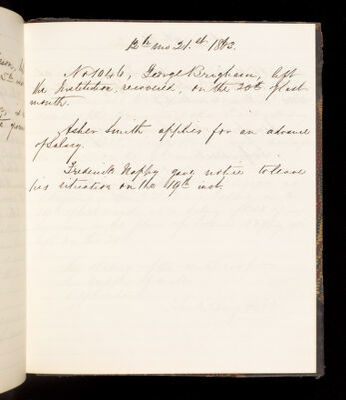 12th mo 21.st 1863.
No 1046, George Brigham, left
the Institution, recovered, on the 20th of last
month.
Asher Smith applies for an advance
of Salary.
Frederick Happy gave notice to leave
his situation on the 19th inst.